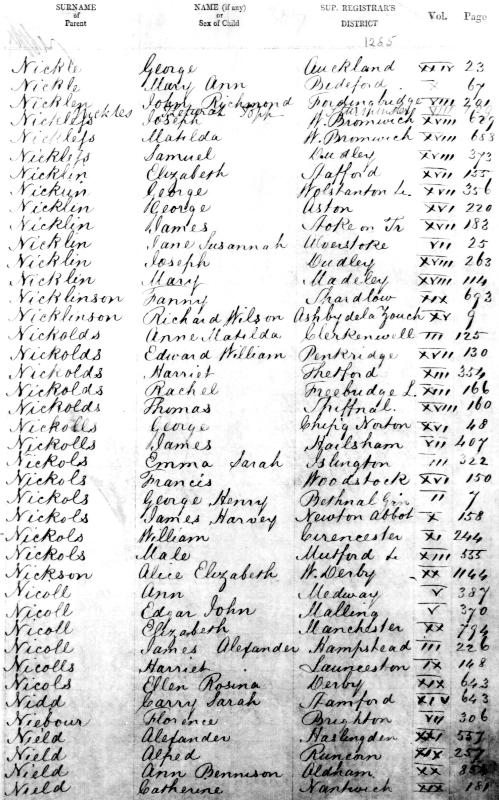 SURNAME of Parent NAME (if any) or Sex of Child SUP. REGISTRAR'S DISTRICT Vol. Page
1285
Nickle George Auckland XXIV 23
Nickle Mary Ann Bideford X 67
Nicklen John Richmond Fordingbridge VIII 291
Nuckles
Nickless Joseph W. Bromwich XVIII 629
Nickless Matilda W. Bromwich XVIII 658
Nickless Samuel Dudley XVIII 373
Nicklin Elizabeth Stafford XVII 155
Nicklin George Wolstanton &c. XVII 356
Nicklin George Aston XVI 220
Nicklin James Stoke on Tr XVII 183
Nicklin Jane Susannah Alverstoke VII 25
Nicklin Joseph Dudley XVIII 263
Nicklin Mary Madeley XVIII 114
Nicklinson Fanny Shardlow XIX 693
Nicklinson Richard Wilson Ashby de la Zouch XV 9
Nickolds Anne Matilda Clerkenwell III 125
Nickolds Edward William Penkridge XVII 130
Nickolds Harriet Thetford XIII 554
Nickolds Rachel Freebridge L. XIII 166
Nickolds Thomas Shiffnal. XVIII 160
Nickolls George Chipg Norton XVI 48
Nickolls James Hailsham VII 407
Nickols Emma Sarah Islington III 322
Nickols Francis Woodstock XVI 150
Nickols George Henry Bethnal Grn II 7
Nickols James Harvey Newton Abbot X 158
Nickols William Cirencester XI 244
Nickols Male Mutford &c XIII 555
Nickson Alice Elizabeth W. Derby XX 1144
Nicoll Ann Medway V 387
Nicoll Edgar John Malling V 370
Nicoll Elizabeth Manchester XX 794
Nicoll James Alexander Hampstead III 226
Nicolls Harriet Launceston IX 148
Nicols Ellen Rosina Derby XIX 643
Nidd Carry Sarah Stamford XIV 643
Niebour Florence Brighton VII 306
Nield Alexander Haslingden XXI 537
Nield Alfred Runcorn XIX 257
Nield Ann Bennison Oldham XX
Nield Catherine Nantwich XIX 181